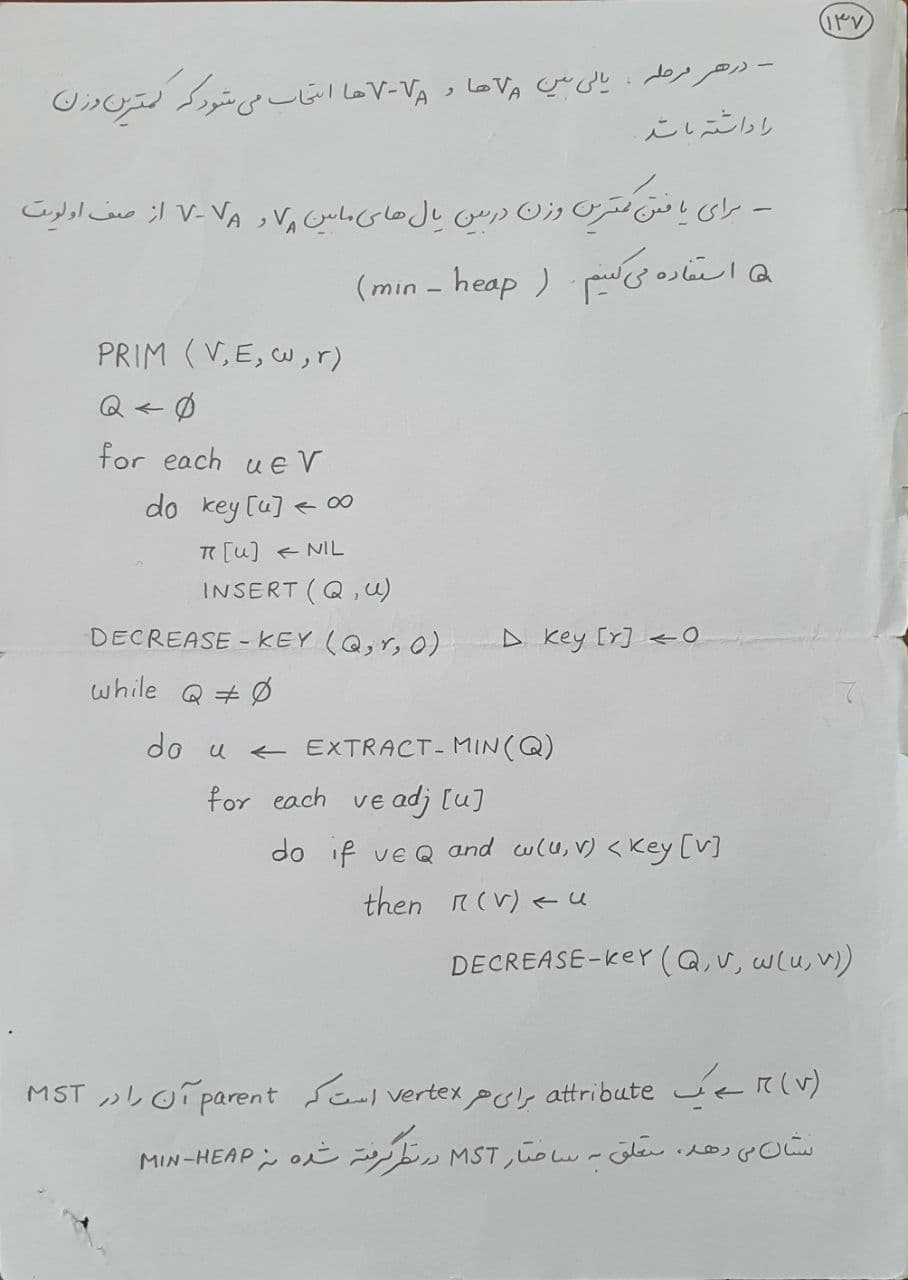 ۱۳۷
- در هر مرحله ، یالی بین V_A ها و V-V_A ها انتخاب می شود که کمترین وزن
را داشته باشد.
- برای یافتن کمترین وزن در بین یال های مابین V_A و V-V_A از صف اولویت
Q استفاده می کنیم. (min-heap)
PRIM (V,E,w,r)
Q ← ∅
for each u∈V
do key[u] ← ∞
π[u] ← NIL
INSERT(Q,u)
DECREASE-KEY(Q,r,0) ▷ key[r] ←0
while Q ≠ ∅
do u ← EXTRACT-MIN(Q)
for each v∈adj[u]
do if v∈Q and w(u,v) < key[v]
then π(v) ← u
DECREASE-KEY(Q,v,w(u,v))
π(v) ← یک attribute برای هر vertex است که parent آن را در MST
نشان می دهد، متعلق به ساختار MST در نظر گرفته شده نه MIN-HEAP